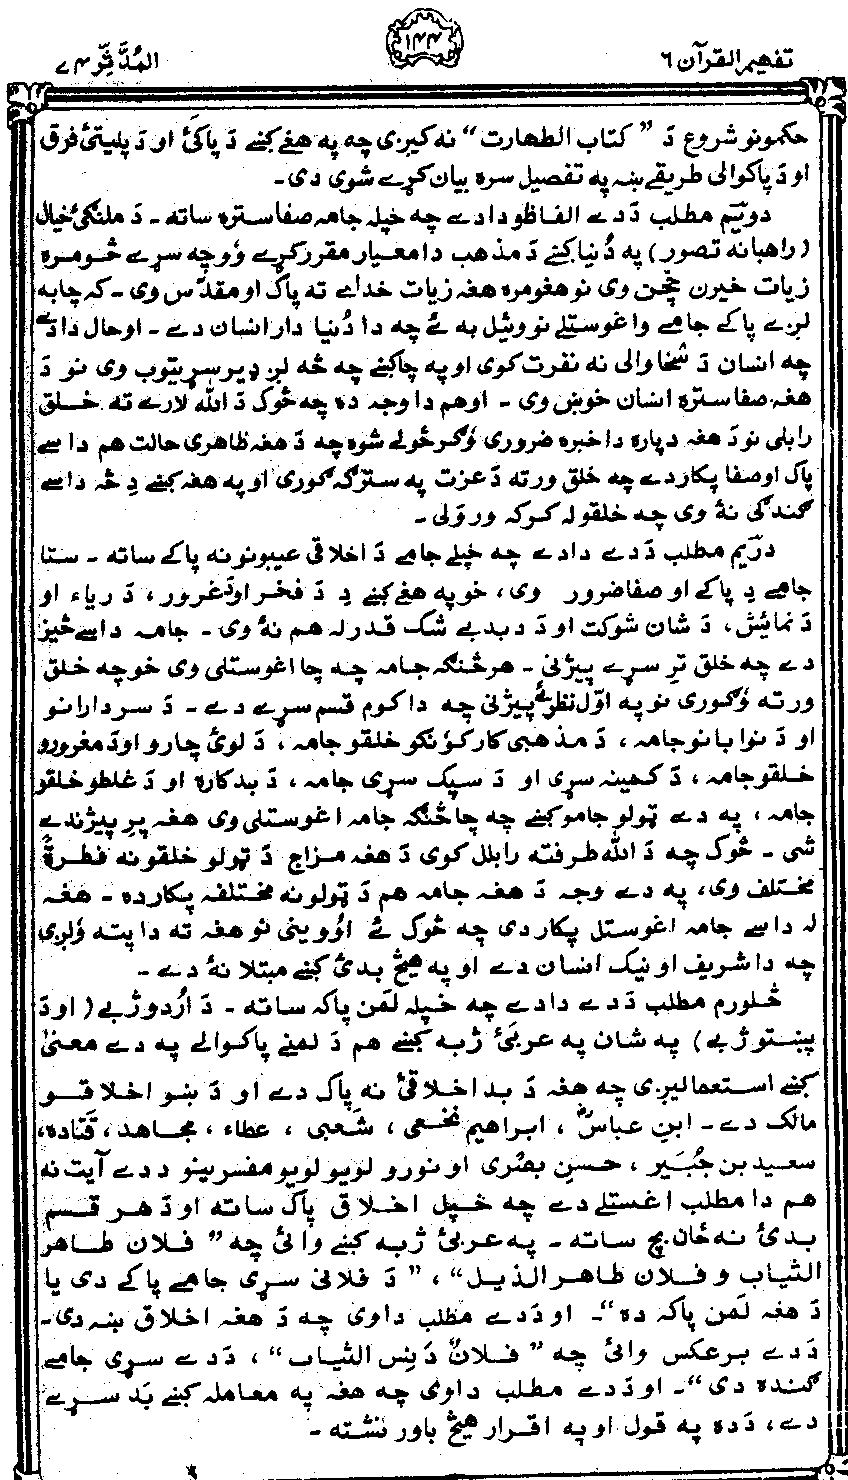 تفهیم القرآن ۶
۱۴۴
المُدَّثِّر ۷۴
حکمونو شروع دَ ” کتاب الطهارت“ نه کیږی چه په هغے کښے دَ پاکئ او دَ پلیتئ فرق
او دَ پاکوالی طریقے ښه په تفصیل سره بیان کړے شوی دی۔
دویم مطلب دَدے الفاظو دا دے چه خپله جامه صفا ستره ساته ۔ دَ ملنګئ خیال
(راهبانه تصور) په دُنیا کښے دَ مذهب دا معیار مقرر کړے وُو چه سړے څومره
زیات خیرن چجن وی نو هغومره هغه زیات خدائے ته پاک او مقدّس وی ۔ که چا به
لږے پاکے جامے واغوستلے نو وئیل به ئے چه دا دُنیا دار انسان دے ۔ او حال دا دے
چه انسان دَ سخا والی نه نفرت کوی او په چا کښے چه څه لږ ډیر سړیتوب وی نو دَ
هغه صفا ستره انسان خوښ وی ۔ او هم دا وجه ده چه څوک دَ الله لارے ته خلق
رابلی نو دَ هغه دپاره دا خبره ضروری وُګرځولے شوه چه دَ هغه ظاهری حالت هم داسے
پاک او صفا پکار دے چه خلق ورته دَ عزت په سترګه ګوری او په هغه کښے دِ څه داسے
ګندګی نۀ وی چه خلقو له کرکه ورولی ۔
دریم مطلب دَدے دا دے چه خپلے جامے دَ اخلاقی عیبونو نه پاکے ساته ۔ ستا
جامے دِ پاکے او صفا ضرور وی، خو په هغے کښے دِ دَ فخر او دَ غرور، دَ ریاء او
دَ نمائش، دَ شان شوکت او دَ دبدبے شک قدر له هم نۀ وی ۔ جامه داسے څیز
دے چه خلق ترِ سړے پیژنی ۔ هر څنګه جامه چه چا اغوستلی وی خو چه خلق
ورته وُګوری نو په اوّل نظر ئے پیژنی چه دا کوم قسم سړے دے ۔ دَ سردارانو
او دَ نوابانو جامه، دَ مذهبی کار کوُنکو خلقو جامه، دَ لوئ چارو او دَ مغرورو
خلقو جامه، دَ کمینه سړی او دَ سپک سړی جامه، دَ بدکاره او دَ غلطو خلقو
جامه، په دے ټولو جامو کښے چه چا څنګه جامه اغوستلی وی هغه پرِ پیژندے
شی ۔ څوک چه دَ الله طرف ته رابلل کوی دَ هغه مزاج دَ ټولو خلقو نه فطرةً
مختلف وی، په دے وجه دَ هغه جامه هم دَ ټولو نه مختلفه پکار ده ۔ هغه
له داسے جامه اغوستل پکار دی چه څوک ئے اوُوینی نو هغه ته دا پته وُلږی
چه دا شریف او نیک انسان دے او په هیڅ بدئ کښے مبتلا نۀ دے ۔
څلورم مطلب دَدے دا دے چه خپله لمن پاکه ساته ۔ دَ اُردو ژبے (او دَ
پښتو ژبے) په شان په عربئ ژبه کښے هم دَ لمنے پاکوالے په دے معنیٰ
کښے استعمالیږی چه هغه دَ بداخلاقئ نه پاک دے او دَ ښو اخلاقو
مالک دے ۔ ابنِ عباسؓ، ابراهیم نخعی، شعبی، عطاء، مجاهد، قتاده،
سعید بن جُبَیر، حسن بصری او نورو لویو لویو مفسرینو دَ دے آیت نه
هم دا مطلب اغستلے دے چه خپل اخلاق پاک ساته او دَ هر قسم
بدئ نه ځان بچ ساته ۔ په عربئ ژبه کښے وائی چه ” فلان طاهر
الثیاب و فلان طاهر الذیل“، ” دَ فلانی سړی جامے پاکے دی یا
دَ هغه لمن پاکه ده“۔ او دَدے مطلب دا وی چه دَ هغه اخلاق ښه دی۔
دَدے برعکس وائی چه ” فلانٌ دَنِس الثیاب“، دَدے سړی جامے
ګنده دی“۔ او دَدے مطلب دا وی چه هغه په معامله کښے بد سړے
دے، دَده په قول او په اقرار هیڅ باور نشته ۔